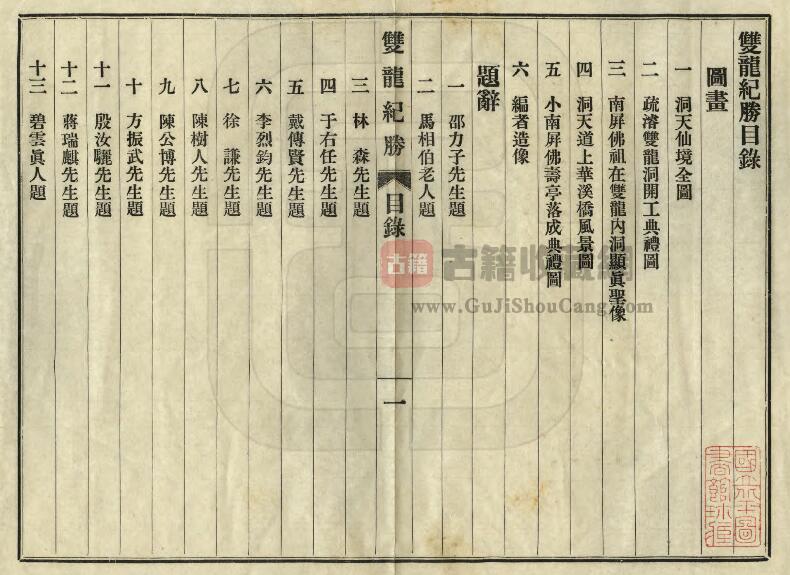 雙龍紀勝目錄
圖畫
一 洞天仙境全圖
二 疏濬雙龍洞開工典禮圖
三 南屏佛祖在雙龍內洞顯眞聖像
四 洞天道上華溪橋風景圖
五 小南屏佛壽亭落成典禮圖
六 編者造像
題辭
一 邵力子先生題
二 馬相伯老人題
雙龍紀勝 目錄 一
三 林 森先生題
四 于右任先生題
五 戴傳賢先生題
六 李烈鈞先生題
七 徐 謙先生題
八 陳樹人先生題
九 陳公博先生題
十 方振武先生題
十一 殷汝驪先生題
十二 蔣瑞麒先生題
十三 碧雲眞人題
古籍 古籍收藏網
www.GuJiShouCang.com